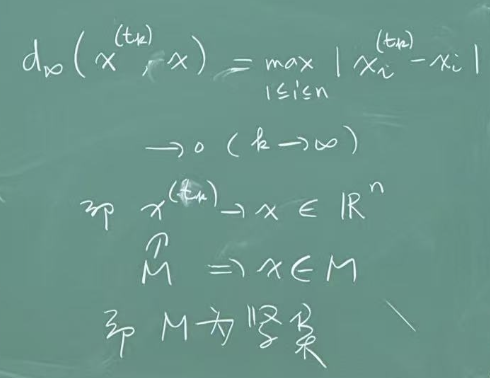 d∞(x^(tₖ), x) = max |xᵢ^(tₖ) - xᵢ|
1≤i≤n
→ 0 (k→∞)
即 x^(tₖ) → x ∈ ℝⁿ
∈
M ⇒ x ∈ M
即 M 为紧集